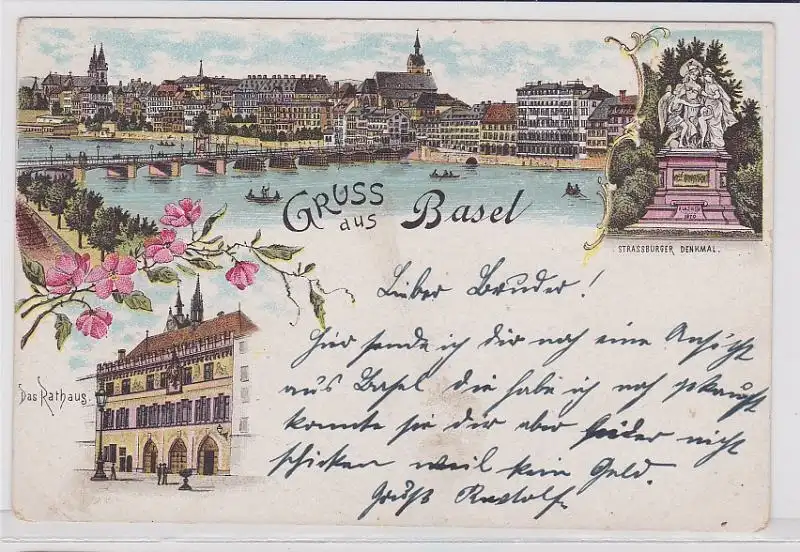 GRUSS
aus
Basel
STRASSBURGER DENKMAL.
Das Rathaus.
Lieber Bruder!
Hier sende ich dir noch eine Ansicht
aus Basel die habe ich noch gekauft
konnte sie dir aber leider nicht
schicken weil kein Geld.
Gruß Rudolf.